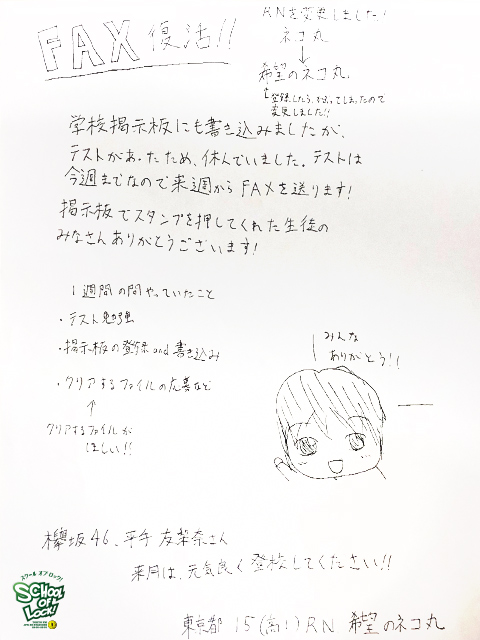 FAX 復活!!
RNを変更しました!
ネコ丸
↓
希望のネコ丸
↑登録したら、かぶってしまったので
変更しました!!
学校掲示板にも書き込みましたが、
テストがあったため、休んでいました。テストは
今週までなので来週からFAXを送ります!
掲示板でスタンプを押してくれた生徒の
みなさんありがとうございます!
1週間の間やっていたこと
・テスト勉強
・掲示板の登録and書き込み
・クリアするファイルの応募など
↑
クリアするファイルが
ほしい!!
みんな
ありがとう!!
欅坂46、平手友梨奈さん
来月は、元気良く登校してください!!
スクール オブ ロック!
SCHOOL OF LOCK!
東京都 15(高1) RN 希望のネコ丸